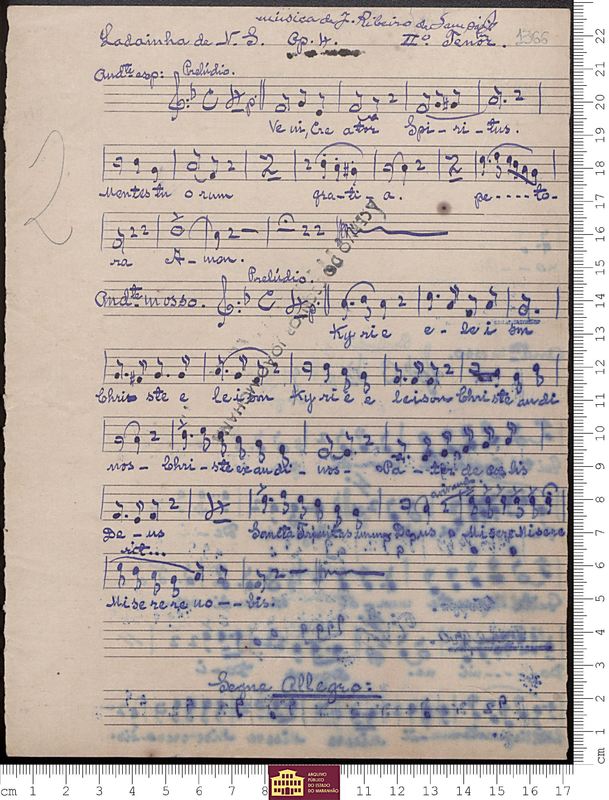 música de J. Ribeiro de Sampaio
Ladainha de N. S. Op. 4. IIº Tenor. 1366
Andte esp: Prelúdio.
Veni, Cre ator Spi-ri-tus.
2
Mentes tu orum gra-ti-a. pe----to-
ra A-men.
Prelúdio.
Andte mosso.
Kyrie e-lei son
Chri ste e leison Kyrie e leison Christe audi
nos- Chri-ste exaudi-nos- Pa-ter de coelis
De-us Sancta Trinitas unus Deus Misere Misere
rit...
Miserere no--bis.
Segue Allegro:
ACERVO DO
JOÃO MOHANA
ARQUIVO
PÚBLICO
DO ESTADO
DO MARANHÃO
cm 1 2 3 4 5 6 7 8 11 12 13 14 15 16 17
cm 1 2 3 4 5 6 7 8 9 10 11 12 13 14 15 16 17 18 19 20 21 22